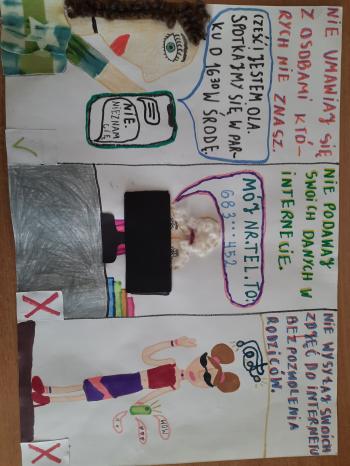 NIE UMAWIAJ SIĘ
Z OSOBAMI KTÓ-
RYCH NIE ZNASZ.
CZEŚĆ JESTEM OLA.
SPOTKAJMY SIĘ W PAR-
KU O 16³⁰ W ŚRODĘ.
NIE.
NIEZNAM
CIĘ
NIE PODAWAJ
SWOICH DANYCH W
INTERNECIE.
MÓJ NR.TEL.TO:
683...452
NIE WYSYŁAJ SWOICH
ZDJĘĆ DO INTERNETU
BEZ POZWOLENIA
RODZICÓW.
WOW